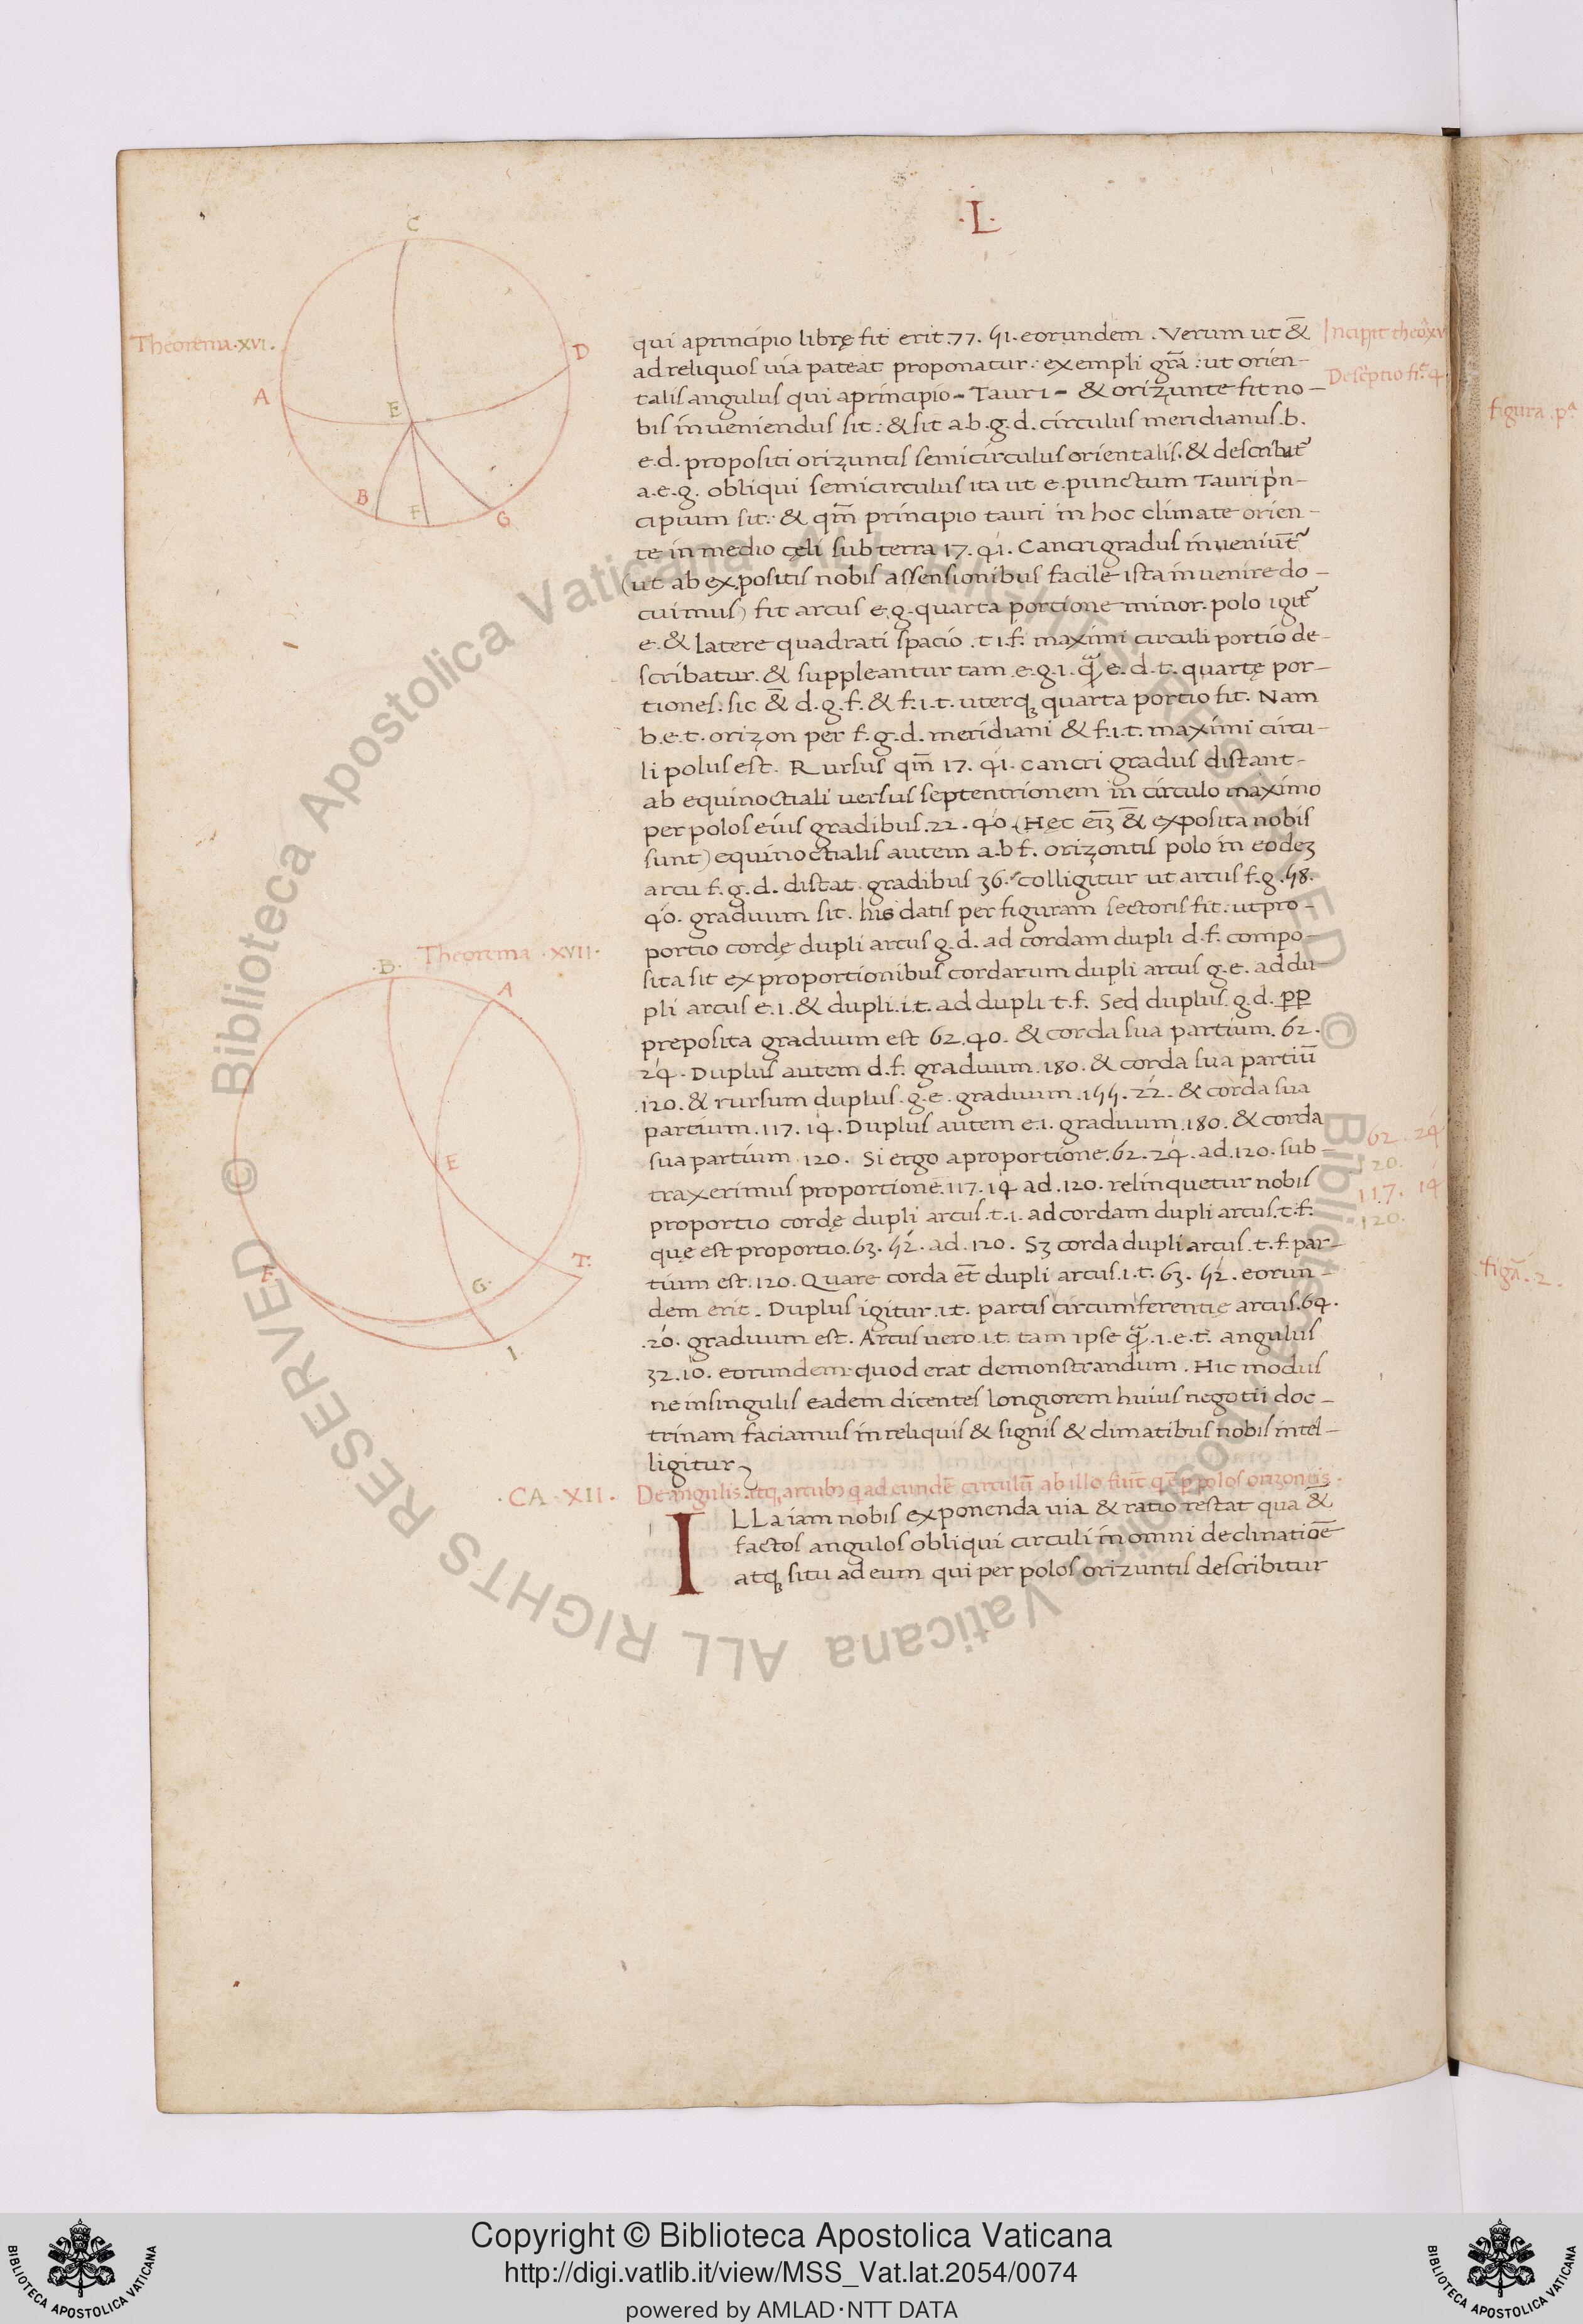 ·L·
Theorema·XVI·
C
D
A
E
B
F
G
qui a principio librę fit erit.77. 51. eorundem. Verum ut &̄
ad reliquos uia pateat proponatur: exempli grã: ut orien-
talis angulus qui a principio-Tauri-& orizunte fit no-
bis inueniendus sit: & sit a.b.g.d. circulus meridianus.b.
e.d. propositi orizuntis semicirculus orientalis. & describit᷑
a.e.g. obliqui semicirculus ita ut e. punctum Tauri prin-
cipium sit: & qm̄ principio tauri in hoc climate orien-
te in medio cęli sub terra 17. 41. Cancri gradus inueniūt᷑
(ut ab expositis nobis assensionibus facile ista inuenire do-
cuimus) fit arcus e.g. quarta portione minor. polo igit᷑
e. & latere quadrati spacio .t.i.f. maximi circuli portio de-
scribatur. & suppleantur tam e.g.i. q̃ e.d.t. quartę por-
tiones: sic &̄ d.g.f. & f.i.t. uterqꝫ quarta portio fit. Nam
b.e.t. orizon per f.g.d. meridiani & f.i.t. maximi circu-
li polus est. Rursus qm̄ 17. 41. cancri gradus distant
ab equinoctiali uersus septentrionem in circulo maximo
per polos eius gradibus.22. 40. (Hęc eīꝫ &̄ exposita nobis
sunt) equinoctialis autem a.b.f. orizontis polo in eodeꝫ
arcu f.g.d. distat gradibus 36. colligitur ut arcus f.g.58.
40. graduum sit. his datis per figuram sectoris fit: ut pro-
portio cordę dupli arcus g.d. ad cordam dupli d.f. compo-
sita sit ex proportionibus cordarum dupli arcus g.e. ad du-
pli arcus e.i. & dupli.i.t. ad dupli t.f. Sed duplus g.d. ꝑꝑ
preposita graduum est 62.40. & corda sua partium. 62.
24. Duplus autem d.f. graduum.180. & corda sua partiū
.120. & rursum duplus.g.e. graduum.155.22. & corda sua
partium.117.14. Duplus autem e.i. graduum.180. & corda
sua partium 120. Si ergo a proportione.62.24. ad.120. sub-
traxerimus proportione.117.14 ad .120. relinquetur nobis
proportio cordę dupli arcus.t.i. ad cordam dupli arcus.t.f.
quę est proportio.63. 52. ad .120. Sꝫ corda dupli arcus .t.f. par-
tium est.120. Quare corda et̄ dupli arcus.i.t. 63. 52. eorun-
dem erit. Duplus igitur .i.t. partis circumferentię arcus.64.
.20. graduum est. Arcus uero .i.t. tam ipse q̃ .i.e.t. angulus
32.10. eorundem: quod erat demonstrandum. Hic modus
ne in singulis eadem dicentes longiorem huius negotii doc-
trinam faciamus in reliquis & signis & climatibus nobis intel-
ligitur
·CA·XII· De angulis atqꝫ arcubꝫ q̄ ad eundē circulū ab illo fiūt q̄ ē p̱ polos orizontis.
ILLa iam nobis exponenda uia & ratio restat qua &̄
factos angulos obliqui circuli in omni declinatioē
atqꝫ situ ad eum qui per polos orizuntis describitur
Incipit theõ xv
Descriptio fī.4.
figura .pᵃ
62. 24
120.
117. 14
120.
figᵃ. 2.
Theorema·XVII·
·B·
A
E
T·
F·
G·
I
© Biblioteca Apostolica Vaticana ALL RIGHTS RESERVED © Biblioteca Apostolica Vaticana ALL RIGHTS RESERVED
Copyright © Biblioteca Apostolica Vaticana
http://digi.vatlib.it/view/MSS_Vat.lat.2054/0074
powered by AMLAD·NTT DATA
BIBLIOTECA APOSTOLICA VATICANA
BIBLIOTECA APOSTOLICA VATICANA